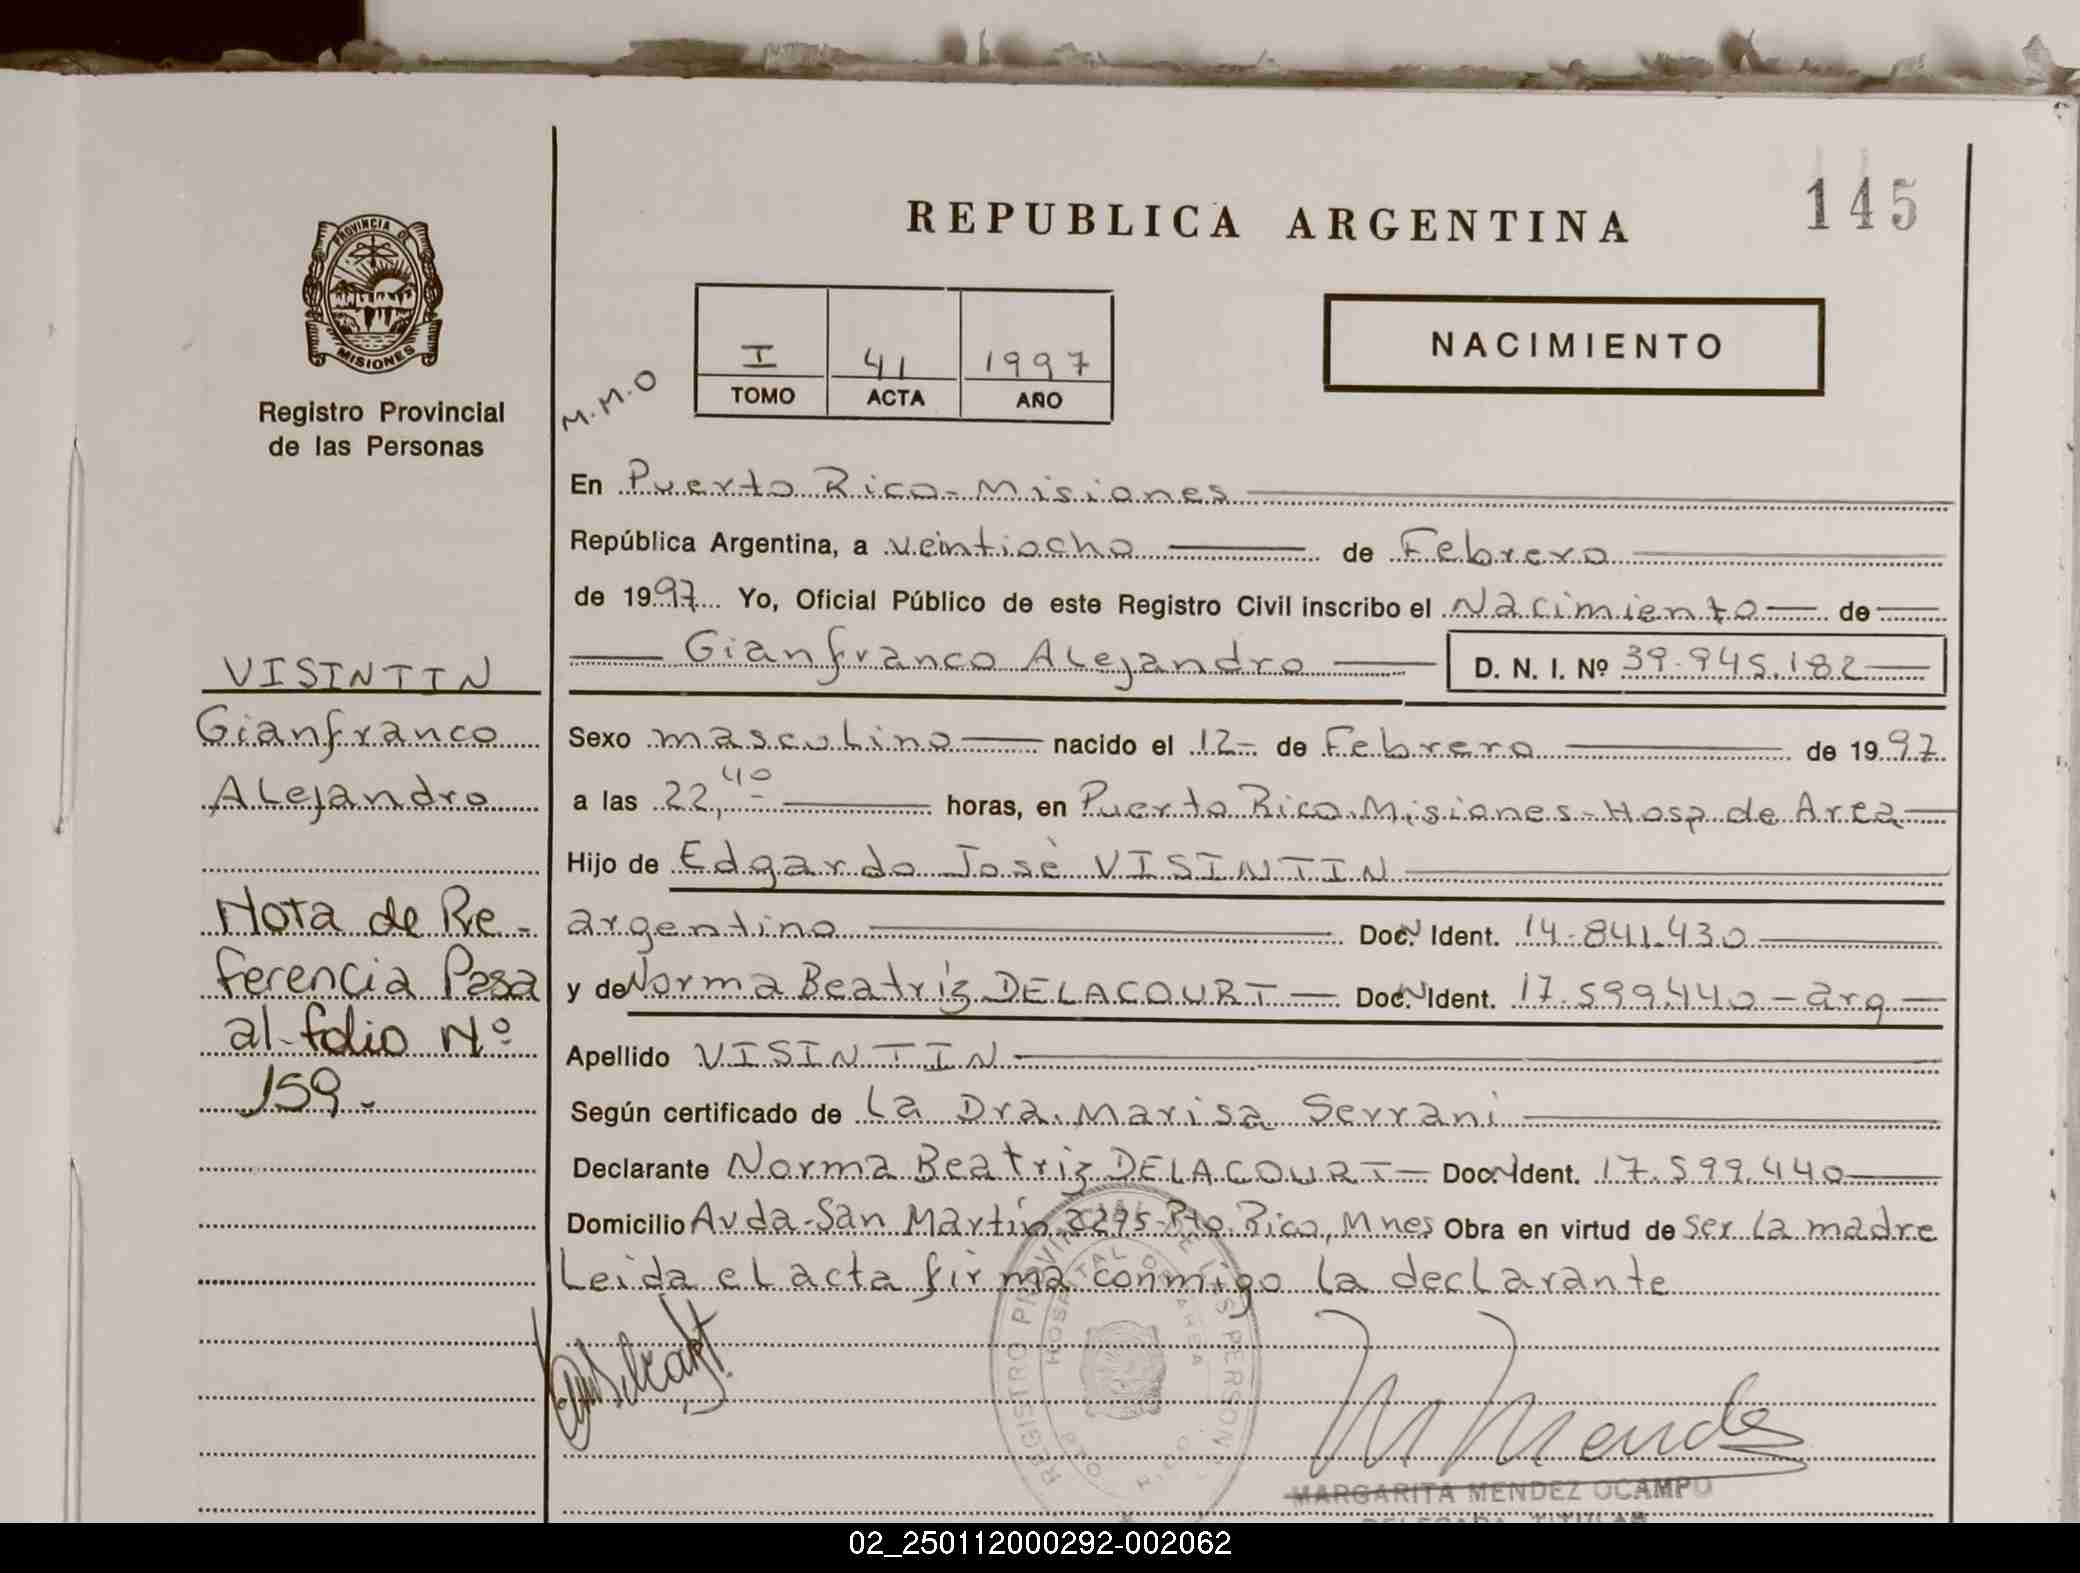 145
REPUBLICA ARGENTINA
PROVINCIA DE
MISIONES
Registro Provincial
de las Personas
NACIMIENTO
I 41 1997
TOMO ACTA AÑO
M.M.O
En Puerto Rico - Misiones
República Argentina, a veintiocho de Febrero
de 1997 Yo, Oficial Público de este Registro Civil inscribo el Nacimiento de
Gianfranco Alejandro D. N. I. Nº 39.945.182
Sexo masculino nacido el 12- de Febrero de 1997
a las 22,40 horas, en Puerto Rico. Misiones - Hosp. de Area
Hijo de Edgardo José VISINTIN
argentino Doc. N Ident. 14.841.430
y de Norma Beatriz DELACOURT Doc. N Ident. 17.599.440 - arg
Apellido VISINTIN
Según certificado de la Dra. Marisa Serrani
Declarante Norma Beatriz DELACOURT Doc. N Ident. 17.599.440
Domicilio Avda. San Martín 2295 - Pto. Rico, Mnes Obra en virtud de ser la madre
Leida el acta firma conmigo la declarante
VISINTIN
Gianfranco
Alejandro
Nota de Re-
ferencia Pasa
al folio Nº
159.
REGISTRO PROVINCIAL DE LAS PERSONAS
HOSPITAL DE AREA
M Mendez
MARGARITA MENDEZ OCAMPO
DELEGADA TITULAR
02_250112000292-002062